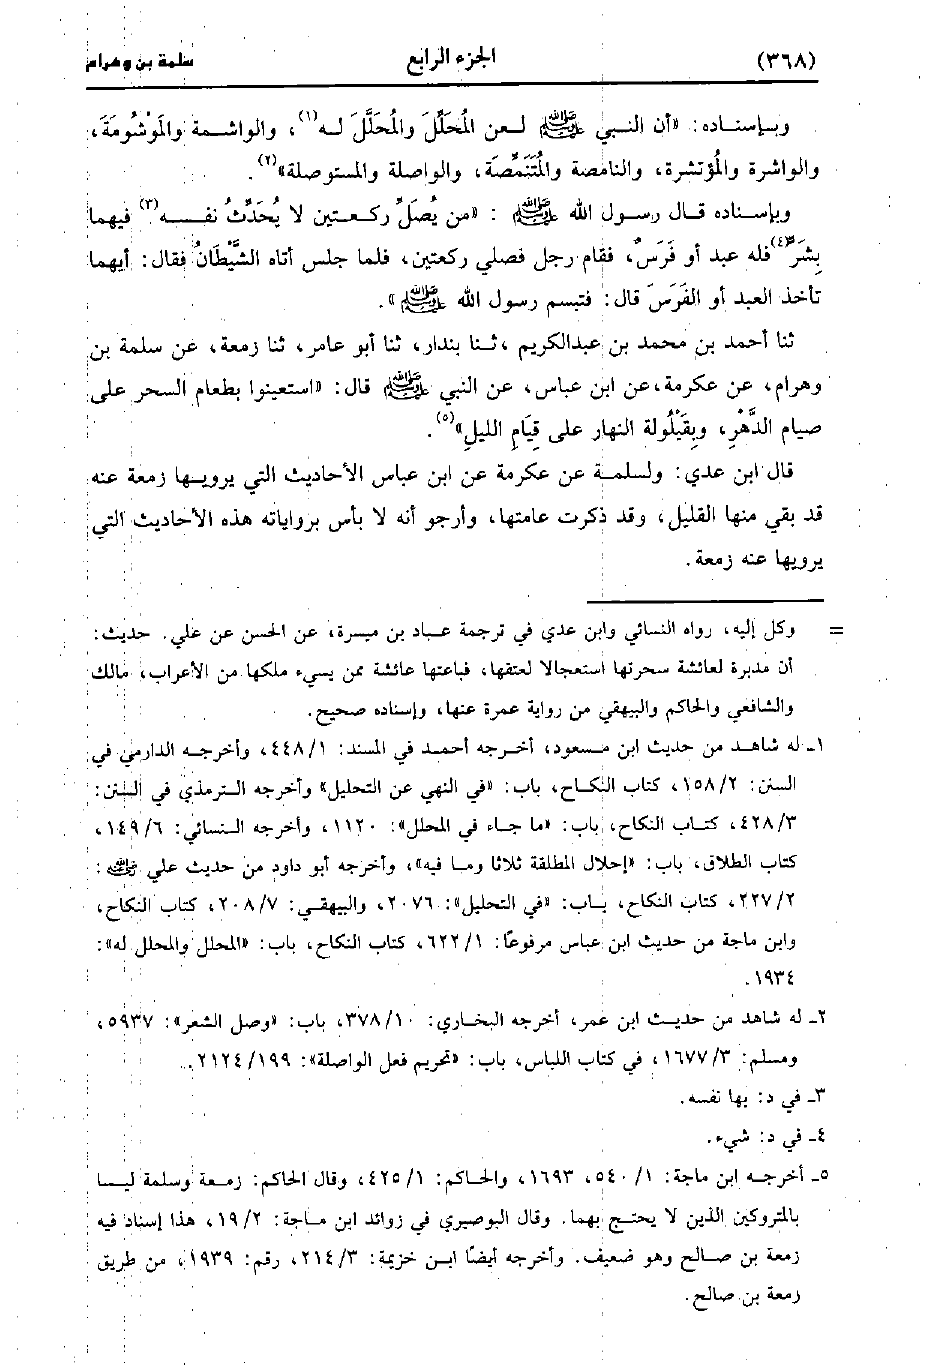 (٣٦٨) الجزء الرابع سلمة بن وهرام
وبإسناده: «أن النبي ﷺ لعن المُحَلِّلَ والمُحَلَّلَ له(١)، والواشمة والمَوْشُومَةَ،
والواشرة والمُؤتشرة، والنامصة والمُتَنَمِّصَة، والواصلة والمستوصلة»(٢).
وبإسناده قال رسول الله ﷺ : «من يُصَلِّ ركعتين لا يُحَدِّثُ نفسه(٣) فيهما
بِشَرٍّ(٤) فله عبد أو فَرَسٌ، فقام رجل فصلي ركعتين، فلما جلس أتاه الشَّيْطَانُ فقال: أيهما
تأخذ العبد أو الفَرَسَ قال: فتبسم رسول الله ﷺ».
ثنا أحمد بن محمد بن عبدالكريم ، ثنا بندار، ثنا أبو عامر، ثنا زمعة، عن سلمة بن
وهرام، عن عكرمة، عن ابن عباس، عن النبي ﷺ قال: «استعينوا بطعام السحر على
صيام الدَّهْرِ، وبِقَيْلُولة النهار على قِيَامِ الليلِ»(٥).
قال ابن عدي: ولسلمة عن عكرمة عن ابن عباس الأحاديث التي يرويها زمعة عنه
قد بقي منها القليل، وقد ذكرت عامتها، وأرجو أنه لا بأس برواياته هذه الأحاديث التي
يرويها عنه زمعة.
= وكل إليه، رواه النسائي وابن عدي في ترجمة عباد بن ميسرة، عن الحسن عن علي. حديث:
أن مدبرة لعائشة سحرتها استعجالا لعتقها، فباعتها عائشة ممن يسيء ملكها من الأعراب، مالك
والشافعي والحاكم والبيهقي من رواية عمرة عنها، وإسناده صحيح.
١ـ له شاهد من حديث ابن مسعود، أخرجه أحمد في المسند: ٤٤٨/١، وأخرجه الدارمي في
السنن: ١٥٨/٢، كتاب النكاح، باب: «في النهي عن التحليل» وأخرجه الترمذي في السنن:
٤٢٨/٣، كتاب النكاح، باب: «ما جاء في المحلل»: ١١٢٠، وأخرجه النسائي: ١٤٩/٦،
كتاب الطلاق، باب: «إحلال المطلقة ثلاثا وما فيه»، وأخرجه أبو داود من حديث علي رضي الله عنه :
٢٢٧/٢، كتاب النكاح، باب: «في التحليل»: ٢٠٧٦، والبيهقي: ٢٠٨/٧، كتاب النكاح،
وابن ماجة من حديث ابن عباس مرفوعًا: ٦٢٢/١، كتاب النكاح، باب: «المحلل والمحلل له»:
١٩٣٤.
٢ـ له شاهد من حديث ابن عمر، أخرجه البخاري: ٣٧٨/١٠، باب: «وصل الشعر»: ٥٩٣٧،
ومسلم: ١٦٧٧/٣، في كتاب اللباس، باب: «تحريم فعل الواصلة»: ٢١٢٤/١٩٩.
٣ـ في د: بها نفسه.
٤ـ في د: شيء.
٥ـ أخرجه ابن ماجة: ٥٤٠/١، ١٦٩٣، والحاكم: ٤٢٥/١، وقال الحاكم: زمعة وسلمة ليسا
بالمتروكين الذين لا يحتج بهما. وقال البوصيري في زوائد ابن ماجة: ١٩/٢، هذا إسناد فيه
زمعة بن صالح وهو ضعيف. وأخرجه أيضًا ابن خزيمة: ٢١٤/٣، رقم: ١٩٣٩، من طريق
زمعة بن صالح.